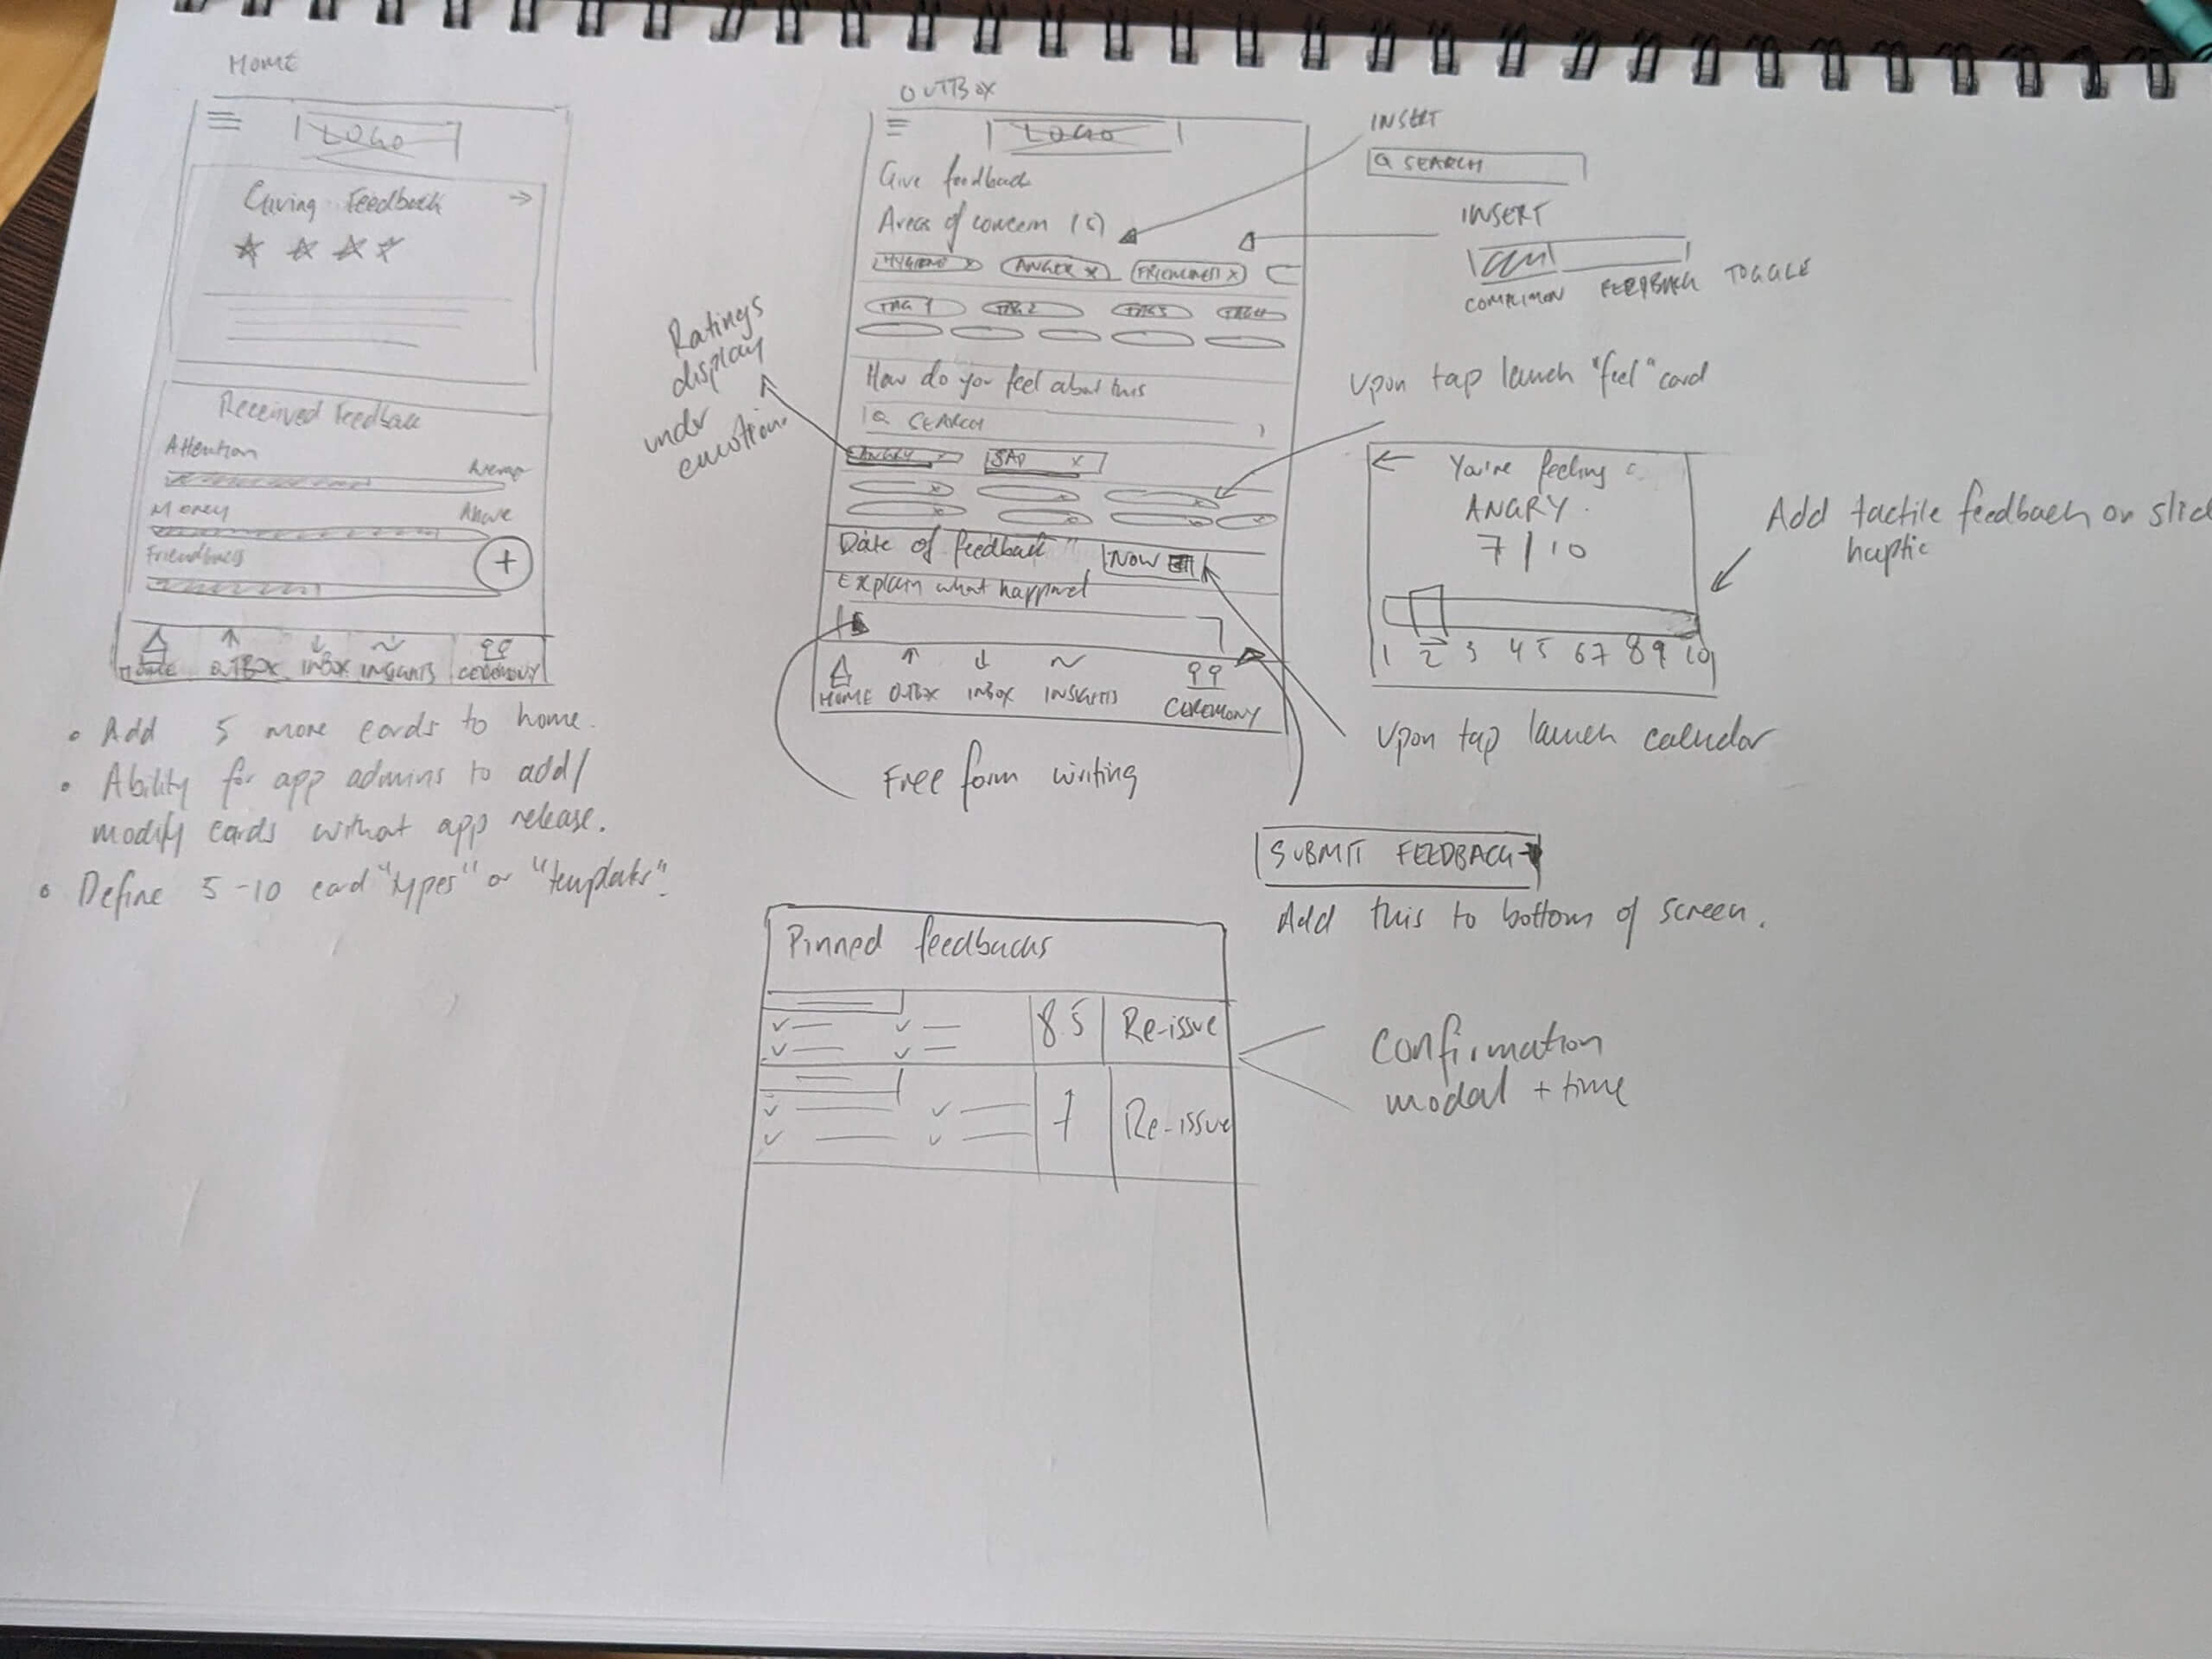 HOME
LOGO
Giving Feedback
Received Feedback
Attention
Average
Money
Above
Friendliness
+
HOME OUTBOX INBOX INSIGHTS CEREMONY
• Add 5 more cards to home.
• Ability for app admins to add/
modify cards without app release.
• Define 5-10 card "types" or "templates".
OUTBOX
LOGO
Give feedback
Areas of concern
HYGIENE X ANGER X FRIENDLINESS X
TAG 1 TAG 2 TAG 3 TAG 4
How do you feel about this
SEARCH
ANGRY X SAD X
Date of feedback NOW
Explain what happened
HOME OUTBOX INBOX INSIGHTS CEREMONY
Ratings
display
under
emotion.
Free form writing
INSERT
SEARCH
INSERT
FEEDBACK TOGGLE
Upon tap launch "feel" card
You're feeling :
ANGRY
7/10
1 2 3 4 5 6 7 8 9 10
Add tactile feedback on
haptic
Upon tap launch calendar
SUBMIT FEEDBACK
Add this to bottom of screen.
Pinned feedbacks
8.5 Re-issue
7 Re-issue
Confirmation
modal + time